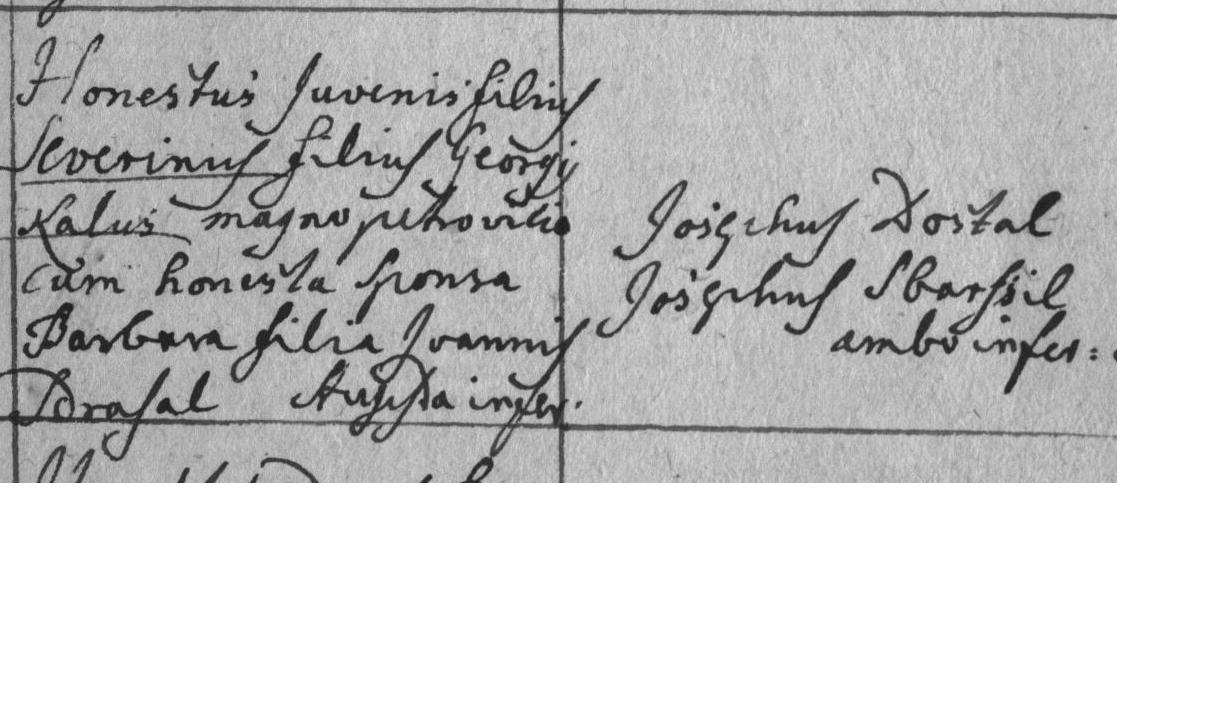 Honestus Juvenis filius
Severinus filius Georgij
Kalus magnopetrovicio
cum honesta Sponsa
Barbara filia Joannis
Drasal infer.
Josephus Dostal
Josephus Sbarsil
ambo infer: